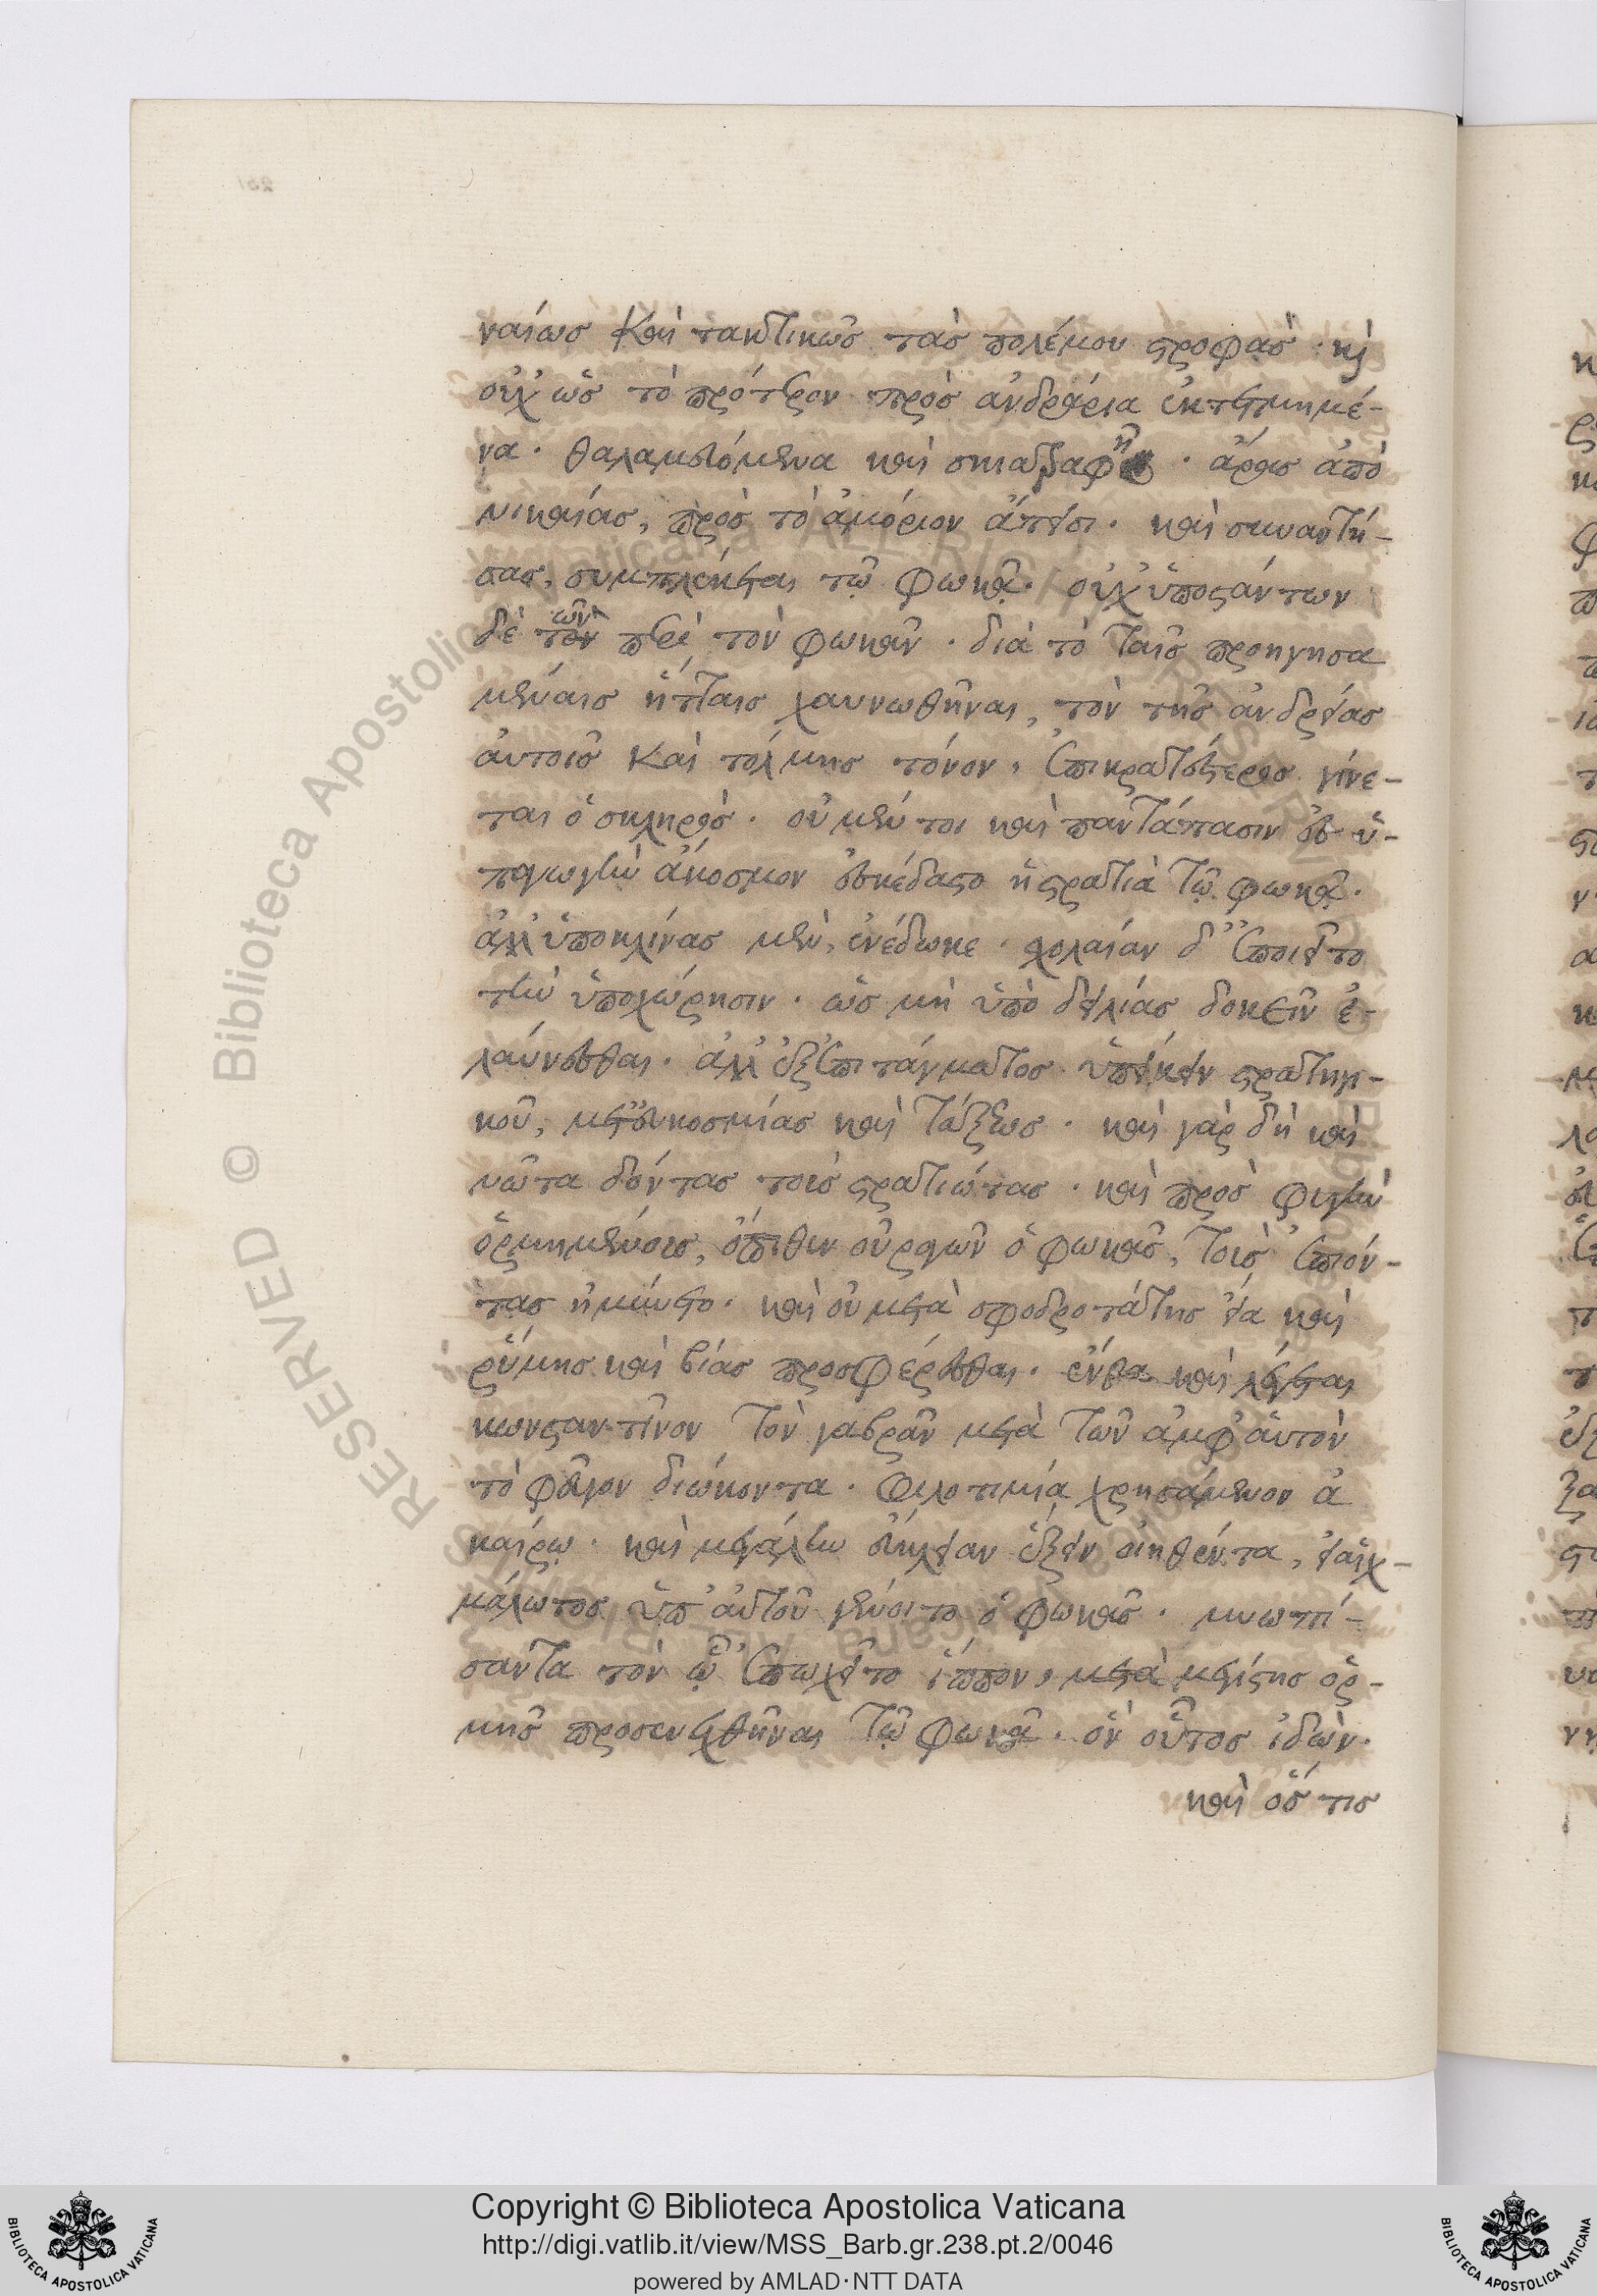 ναίως καὶ τακτικῶς τὰς πολέμου στροφὰς · κὶ
οὐχ ὡς τὸ πρότερον πρὸς ἀνδράρια ἐκτετμημέ-
να · θαλαμευόμενα καὶ σκιατραφῆ · ἄρας ἀπὸ
νικαίας, πρὸς τὸ ἀμόριον ἄπεισι · καὶ συναντή-
σας, συμπλέκεται τῷ φωκᾷ · οὐχ ὑποστάντων
δὲ τῶν περὶ τὸν φωκᾶν · διὰ τὸ ταῖς προηγησα
μέναις ἥτταις χαυνωθῆναι, τὸν τῆς ἀνδρείας
αὐτοῖς καὶ τόλμης τόνον, ἐπικρατέστερος γίνε-
ται ὁ σκληρὸς · οὐ μέν τοι καὶ παντάπασιν ἐς ὑ-
παγωγὴν ἄκοσμον ἐσκέδαστο ἡ στρατιὰ τῷ φωκᾷ ·
ἀλλ' ὑποκλίνας μὲν, ἐνέδωκε · σχολαίαν δ' ἐποιεῖτο
τὴν ὑποχώρησιν · ὡς μὴ ὑπὸ δειλίας δοκεῖν ἐ-
λαύνεσθαι · ἀλλ' ἐξ ἐπιτάγματος ὑπείκειν στρατηγι-
κοῦ, μετ' εὐκοσμίας καὶ τάξεως · καὶ γὰρ δὴ καὶ
νῶτα δόντας τοὺς στρατιώτας · καὶ πρὸς φυγὴν
ὁρμημένους, ὄπιθεν οὐραγῶν ὁ φωκᾶς, τοὺς ἐπιόν-
τας ἠμύνετο · καὶ οὐ μετὰ σφοδροτάτης εἴα καὶ
ῥύμης καὶ βίας προσφέρεσθαι · ἔνθα καὶ λέγεται
κωνσταντῖνον τὸν γαβρᾶν μετὰ τῶν ἀμφ' αὐτὸν
τὸ φεῦγον διώκοντα · φιλοτιμίᾳ χρησάμενον ἀ
καίρῳ · καὶ μεγάλην εὔκλειαν ἕξειν οἰηθέντα, εἰ αἰχ-
μάλωτος ὑπ' αὐτοῦ γένοιτο ὁ φωκᾶς · μυωπί-
σαντα τὸν ᾧ ἐπωχεῖτο ἵππον, μετὰ μεγίστης ὁρ-
μῆς προσενεχθῆναι τῷ φωκᾷ · ὃν οὗτος ἰδὼν ·
καὶ ὅς τις